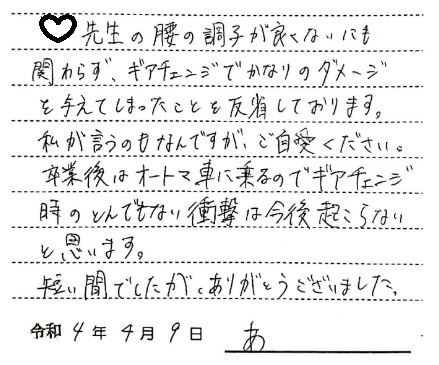 ♡先生の腰の調子が良くないにも
関わらず、ギアチェンジでかなりのダメージ
を与えてしまったことを反省しております。
私が言うのもなんですが、ご自愛ください。
卒業後はオートマ車に乗るのでギアチェンジ
時のとんでもない衝撃は今後起こらない
と思います。
短い間でしたが、ありがとうございました。
令和4年4月9日 あ